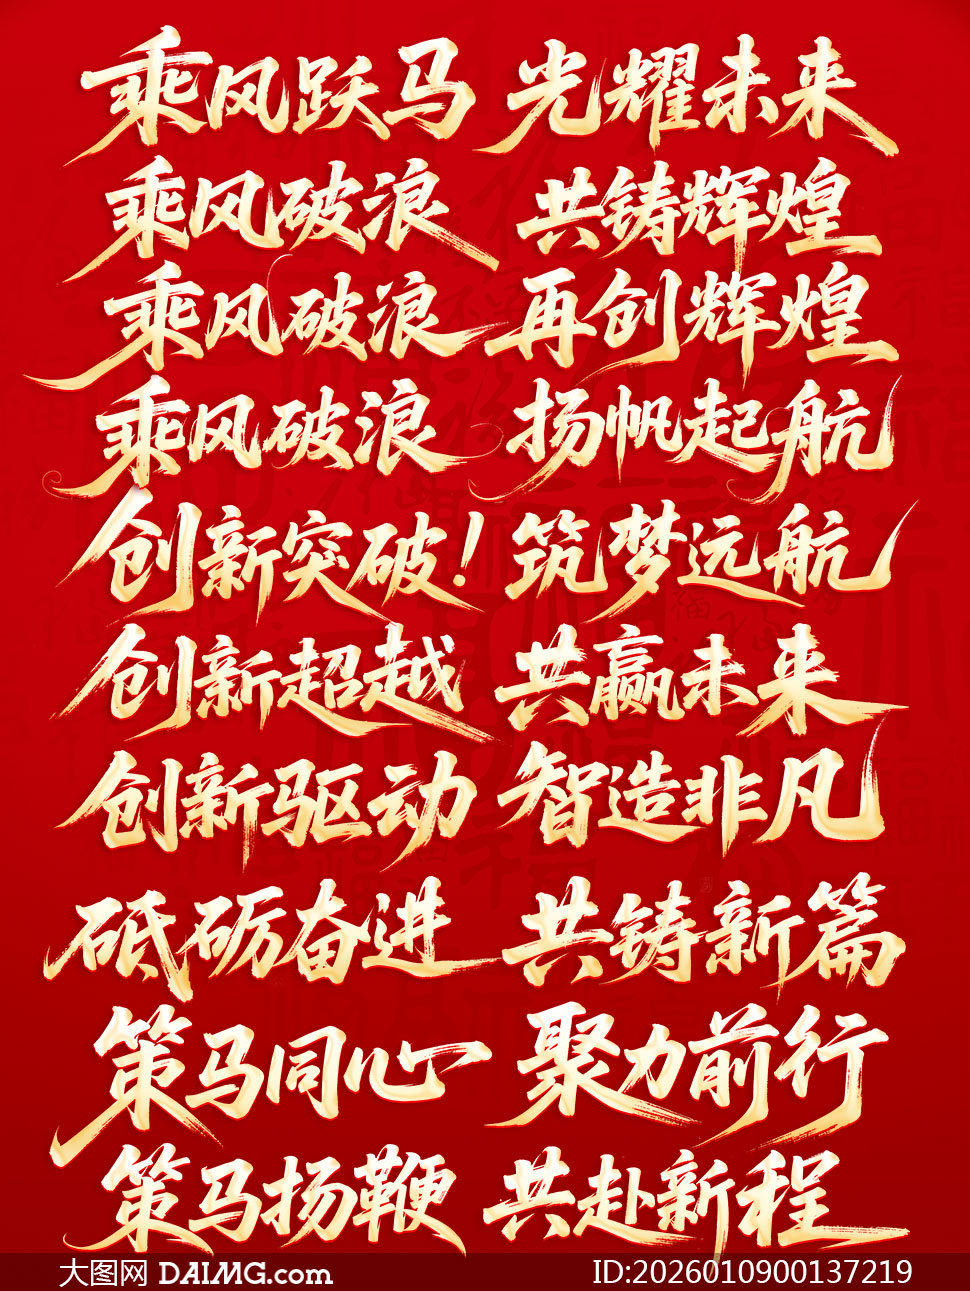 乘风跃马 光耀未来
乘风破浪 共铸辉煌
乘风破浪 再创辉煌
乘风破浪 扬帆起航
创新突破! 筑梦远航
创新超越 共赢未来
创新驱动 智造非凡
砥砺奋进 共铸新篇
策马同心 聚力前行
策马扬鞭 共赴新程
大图网 DAIMG.com ID:2026010900137219